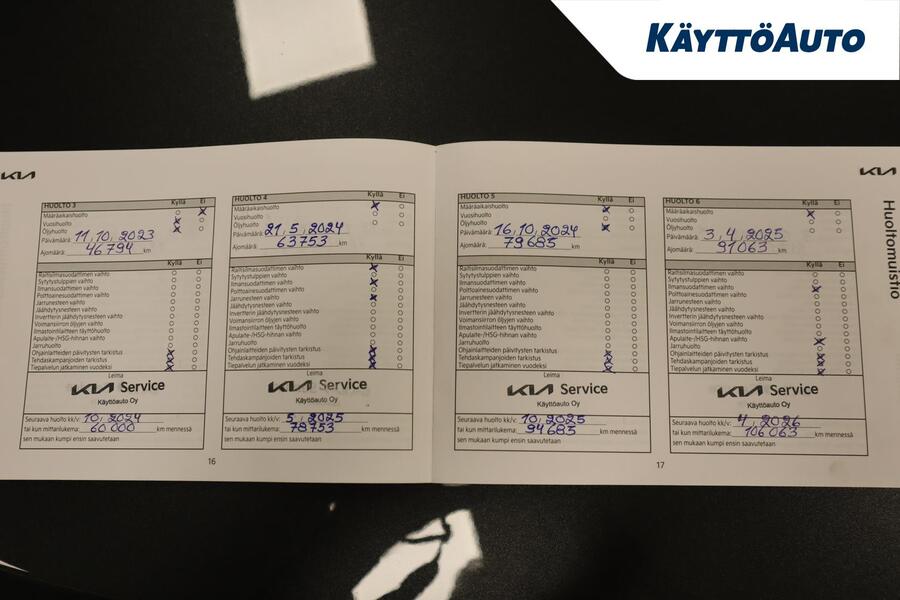 KÄYTTÖAUTO
KIA
KIA
Huoltomuistio
HUOLTO 3 Kyllä Ei
Määräaikaishuolto
Vuosihuolto
Öljyhuolto
Päivämäärä: 11.10.2023
Ajomäärä: 46794 km
Kyllä Ei
Raitisilmasuodattimen vaihto
Sytytystulppien vaihto
Ilmansuodattimen vaihto
Polttoainesuodattimen vaihto
Jarrunesteen vaihto
Jäähdytysnesteen vaihto
Invertterin jäähdytysnesteen vaihto
Voimansiirron öljyjen vaihto
Ilmastointilaitteen täyttöhuolto
Apulaite-/HSG-hihnan vaihto
Jarruhuolto
Ohjainlaitteiden päivitysten tarkistus
Tehdaskampanjoiden tarkistus
Tiepalvelun jatkaminen vuodeksi
Leima
KIA Service
Käyttöauto Oy
Seuraava huolto kk/v: 10.2024
tai kun mittarilukema: 60 000 km mennessä
sen mukaan kumpi ensin saavutetaan
16
HUOLTO 4 Kyllä Ei
Määräaikaishuolto
Vuosihuolto
Öljyhuolto
Päivämäärä: 21.5.2024
Ajomäärä: 63753 km
Kyllä Ei
Raitisilmasuodattimen vaihto
Sytytystulppien vaihto
Ilmansuodattimen vaihto
Polttoainesuodattimen vaihto
Jarrunesteen vaihto
Jäähdytysnesteen vaihto
Invertterin jäähdytysnesteen vaihto
Voimansiirron öljyjen vaihto
Ilmastointilaitteen täyttöhuolto
Apulaite-/HSG-hihnan vaihto
Jarruhuolto
Ohjainlaitteiden päivitysten tarkistus
Tehdaskampanjoiden tarkistus
Tiepalvelun jatkaminen vuodeksi
Leima
KIA Service
Käyttöauto Oy
Seuraava huolto kk/v: 5.2025
tai kun mittarilukema: 78753 km mennessä
sen mukaan kumpi ensin saavutetaan
HUOLTO 5 Kyllä Ei
Määräaikaishuolto
Vuosihuolto
Öljyhuolto
Päivämäärä: 16.10.2024
Ajomäärä: 79685 km
Kyllä Ei
Raitisilmasuodattimen vaihto
Sytytystulppien vaihto
Ilmansuodattimen vaihto
Polttoainesuodattimen vaihto
Jarrunesteen vaihto
Jäähdytysnesteen vaihto
Invertterin jäähdytysnesteen vaihto
Voimansiirron öljyjen vaihto
Ilmastointilaitteen täyttöhuolto
Apulaite-/HSG-hihnan vaihto
Jarruhuolto
Ohjainlaitteiden päivitysten tarkistus
Tehdaskampanjoiden tarkistus
Tiepalvelun jatkaminen vuodeksi
Leima
KIA Service
Käyttöauto Oy
Seuraava huolto kk/v: 10.2025
tai kun mittarilukema: 94685 km mennessä
sen mukaan kumpi ensin saavutetaan
17
HUOLTO 6 Kyllä Ei
Määräaikaishuolto
Vuosihuolto
Öljyhuolto
Päivämäärä: 3.4.2025
Ajomäärä: 91063 km
Kyllä Ei
Raitisilmasuodattimen vaihto
Sytytystulppien vaihto
Ilmansuodattimen vaihto
Polttoainesuodattimen vaihto
Jarrunesteen vaihto
Jäähdytysnesteen vaihto
Invertterin jäähdytysnesteen vaihto
Voimansiirron öljyjen vaihto
Ilmastointilaitteen täyttöhuolto
Apulaite-/HSG-hihnan vaihto
Jarruhuolto
Ohjainlaitteiden päivitysten tarkistus
Tehdaskampanjoiden tarkistus
Tiepalvelun jatkaminen vuodeksi
Leima
KIA Service
Käyttöauto Oy
Seuraava huolto kk/v: 4.2026
tai kun mittarilukema: 106 063 km mennessä
sen mukaan kumpi ensin saavutetaan